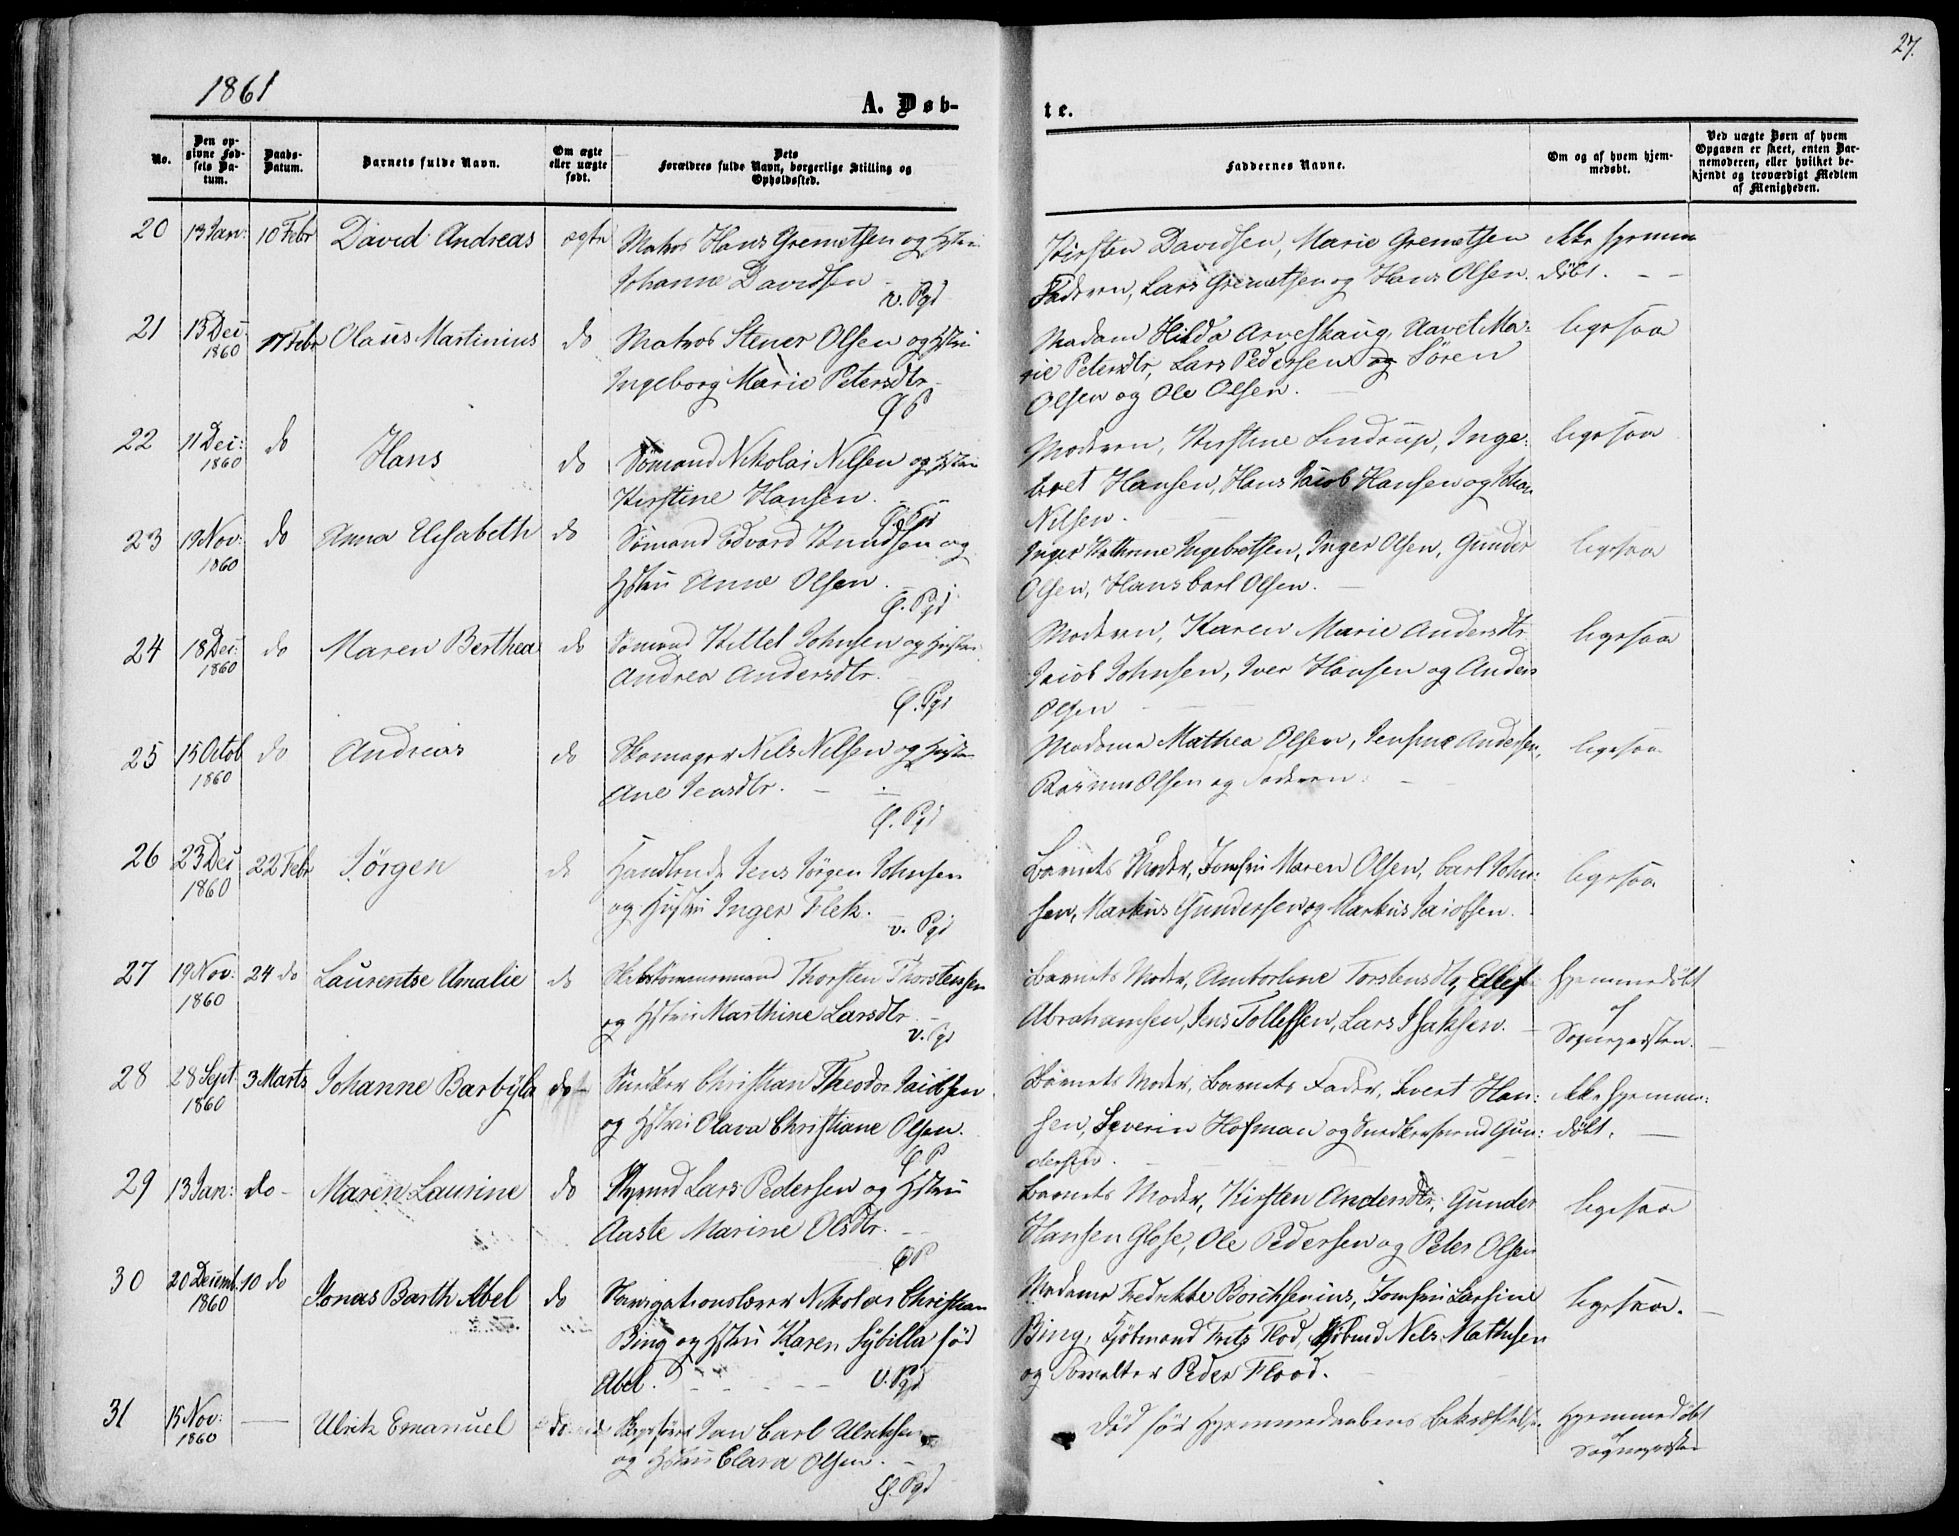 1861
27.
A. Døb-
te.
No.
Den op-
givne Fød-
sels Da-
tum.
Daabs-
Datum.
Barnets fulde Navn.
Om ægte
eller uægte
født.
Dets
Forældres fulde Navn, borgerlige Stilling og
Opholdssted.
Faddernes Navne.
Om og af hvem hjem-
medøbt.
Ved uægte Børn af hvem
Opgaven er skeet, enten Bar-
nemoderen, eller hvilket be-
kjendt og troværdigt Medlem
af Menigheden.
20 13 Jan: 10 Febr David Andreas ægte Matros Hans Gremetsen og Hstru
Johanne Davidsen
v. Pgd
Kirsten Davidsen, Marie Gremetsen
Faderen, Lars Gremetsen og Hans Olsen.
ikke hjemme
døbt.
21 13 Dec 1860 17 Febr Olaus Martinius do Matros Stener Olsen og Hstru
Ingeborg Marie Petersdtr
Ø P
Madam Hilda Arveskaug, Navet Ma-
rie Petersdtr, Lars Pedersen og Søren
Olsen og Ole Olsen.
ligesaa
22 11 Dec: 1860 do Hans do Sømand Nikolai Nilsen og Hstru
Kirstine Hansen.
Moderen, Kirstine Lindrup, Inge-
bret Hansen, Hans Jacob Hansen og
Nilsen.
ligesaa
23 19 Nov: 1860 do Anna Elisabeth do Sømand Edvard Knudsen og
Hstru Anne Olsen.
Ø. Pgd
Inger Kathrine Ingebretsen, Inger Olsen, Gunder
Olsen, Hans Carl Olsen.
ligesaa
24 18 Dec: 1860 do Maren Berthea do Sømand Kittel Johnsen og Hustru
Andrea Andersdtr.
Ø. Pgd
Moderen, Karen Marie Andersdtr
Jacob Johnsen, Iver Hansen og Anders
Olsen
ligesaa
25 15 Octob 1860 do Andreas do Skomager Nils Nilsen og Hustru
Ane Jensdtr.
Ø. Pgd
Madame Mathea Olsen, Jensine Andersen,
Rasmus Olsen og Faderen.
ligesaa
26 23 Dec 1860 22 Febr Jørgen do Handlende Jens Jørgen Johnsen
og Hustru Inger Flek.
v. Pgd
Barnets Moder, Jomfru Maren Olsen, Carl John-
sen, Markus Gundersen og Markus Jacobsen.
ligesaa
27 19 Nov: 1860 24 do Laurentse Amalie do Thorsten Thorstensen
og Hstru Marthine Larsdtr.
v. Pgd
Barnets Moder, Amborline Torstensdtr, Ellef
Abrahamsen, Jens Tollefsen, Lars Isaksen.
hjemmedøbt
af
Sognepresten.
28 28 Sept 1860 3 Marts Johanne Barbyla do Snedker Christian Theodor Jacobsen
og Hstru Olava Christiane Olsen.
Ø P
Barnets Moder, Barnets Fader, Evert Han-
sen, Severin Hofman og Snedkersvend Gun-
dersen.
ikke hjemme-
døbt.
29 13 Jan: do Maren Laurine do Lars Pedersen og Hstru
Aaste Marine Olsdtr.
Ø P
Barnets Moder, Kirsten Andersdtr, Gunder
Hansen Glose, Ole Pedersen og Peter Olsen
ligesaa
30 20 Decemb. 1860 10 do Jonas Barth Abel do Navigationslærer Nikolai Christian
Bing og Hstru Karen Sybilla fød
Abel.
V. Pgd
Madame Fredrikke Borchsenius, Jomfru Larsine
Bing, Kjøbmand Frits Flod, Nels Mathisen
og Forvalter Peder Flood.
ligesaa.
31 15 Nov: 1860 Ulrik Emanuel do Jan Carl Ulriksen
og Hstru Clara Olsen.
Ø. Pgd
Død før Hjemmedaabens Bekræftelse.
Hjemmedøbt
af
Sognepresten